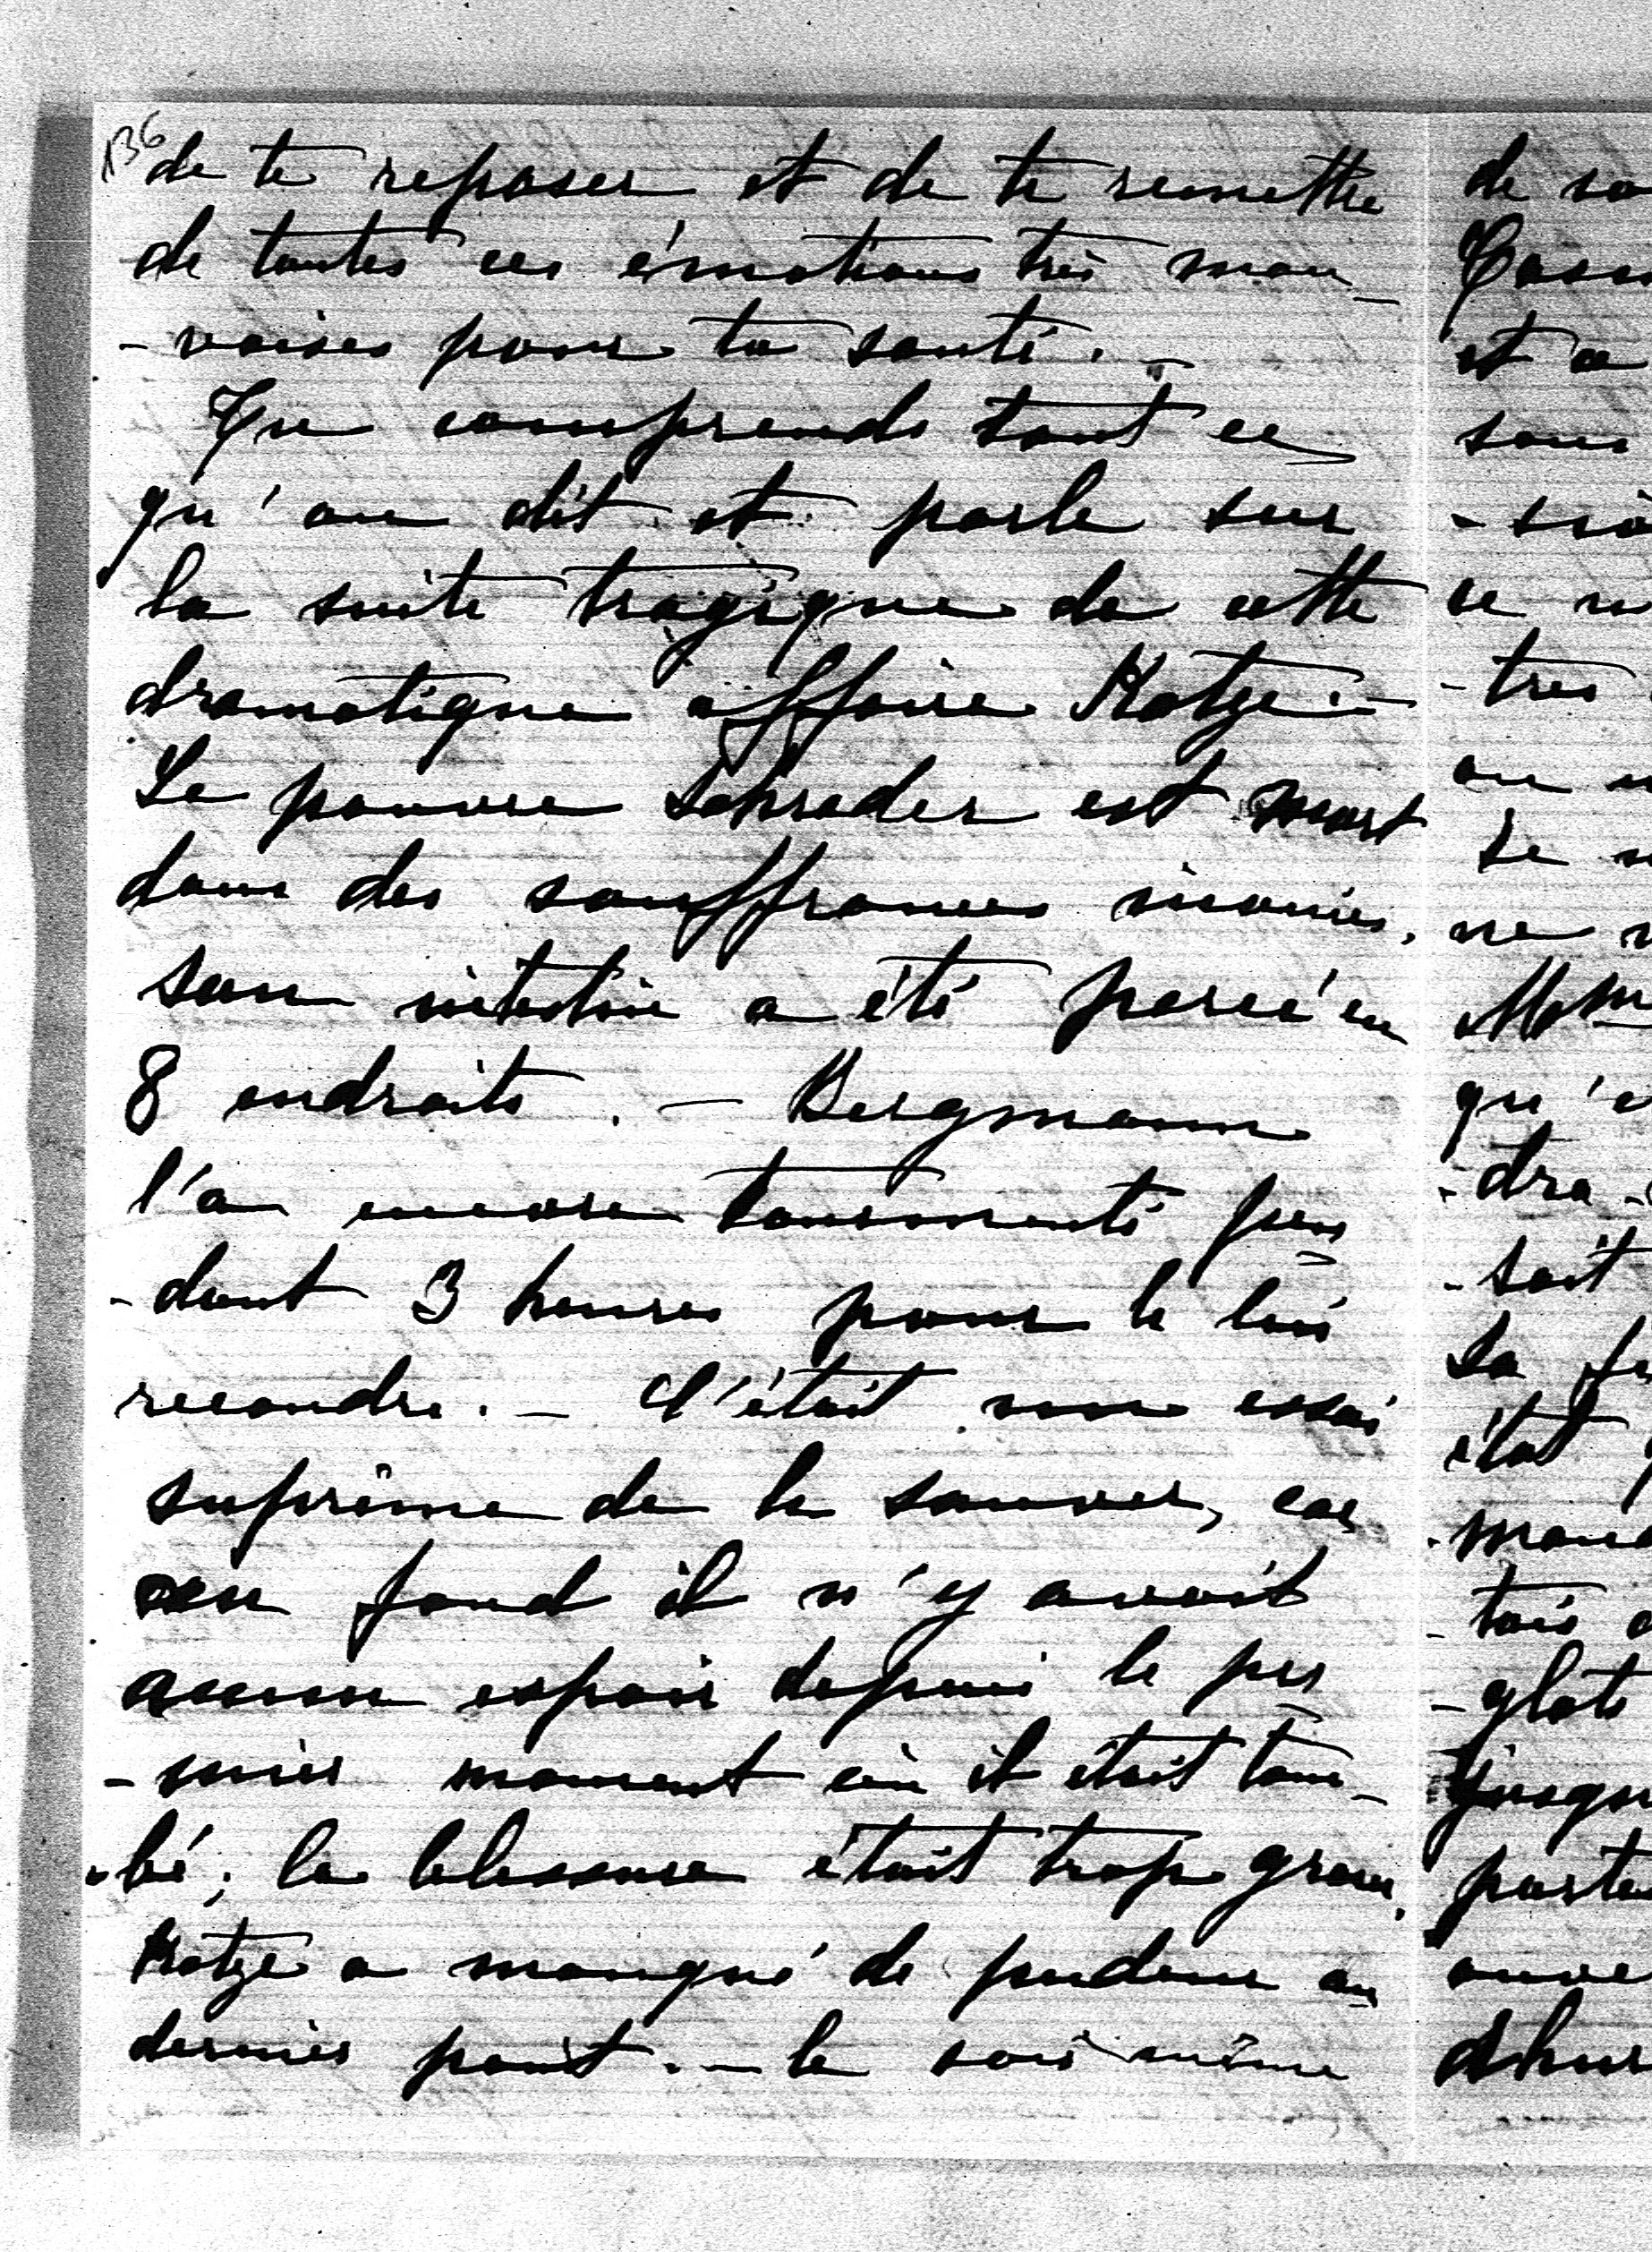 136
de te reposer et de te remettre
de toutes ces émotions très mau-
-vaises pour ta santé. -
Tu comprends tout ce
qu'on dit et parle sur
la suite tragique de cette
dramatique affaire Kotze. -
Le pauvre Schrader est mort
dans des souffrances inouïes.
son intestin a été percé en
8 endroits. - Bergmann
l'a encore tourmenté pen
-dant 3 heures pour le lui
recoudre. - C'était un essai
suprême de le sauver, car
au fond il n'y avait
aucun espoir depuis le pre
-mier moment où il était tom-
-bé; la blessure était trop grave.
Kotze a manqué de pudeur au
dernier point. - le soir même
de
et a
sous
ce
-tres
on
Le
ne
Mme
qu'
-dra
-sait
état
-tais